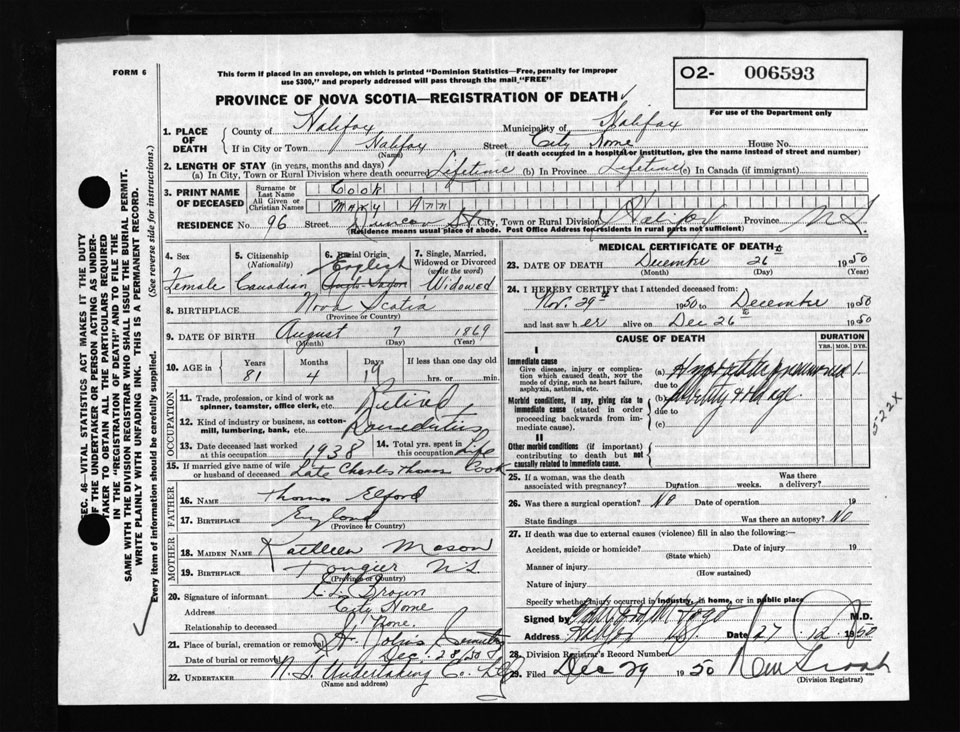 FORM 6
This form if placed in an envelope, on which is printed "Dominion Statistics—Free, penalty for improper
use $300," and properly addressed will pass through the mail "FREE"
O2- 006593
For use of the Department only
PROVINCE OF NOVA SCOTIA—REGISTRATION OF DEATH
SEC. 46—VITAL STATISTICS ACT MAKES IT THE DUTY
OF THE UNDERTAKER OR PERSON ACTING AS UNDER-
TAKER TO OBTAIN ALL THE PARTICULARS REQUIRED
IN THE "REGISTRATION OF DEATH" AND TO FILE THE
SAME WITH THE DIVISION REGISTRAR WHO SHALL ISSUE THE BURIAL PERMIT.
WRITE PLAINLY WITH UNFADING INK. THIS IS A PERMANENT RECORD.
Every item of information should be carefully supplied. (See reverse side for instructions.)
1. PLACE OF DEATH County of Halifax Municipality of Halifax
If in City or Town Halifax Street City Home House No.
(Name) (If death occurred in a hospital or institution, give the name instead of street and number)
2. LENGTH OF STAY (in years, months and days)
(a) In City, Town or Rural Division where death occurred Lifetime (b) In Province Lifetime (c) In Canada (if immigrant)
3. PRINT NAME OF DECEASED Surname or Last Name Cook
All Given or Christian Names Mary Ann
RESIDENCE No. 96 Street Duncan St City, Town or Rural Division Halifax Province N.S.
Residence means usual place of abode. Post Office Address for residents in rural parts not sufficient)
4. Sex 5. Citizenship (Nationality) 6. Racial Origin 7. Single, Married, Widowed or Divorced (write the word)
Female Canadian English Widowed
8. BIRTHPLACE Nova Scotia
(Province or Country)
9. DATE OF BIRTH August 7 1869
(Month) (Day) (Year)
10. AGE in Years Months Days If less than one day old
81 4 19 hrs. or min.
OCCUPATION
11. Trade, profession, or kind of work as spinner, teamster, office clerk, etc. Retired
12. Kind of industry or business, as cotton-mill, lumbering, bank, etc.
13. Date deceased last worked at this occupation 1938 14. Total yrs. spent in this occupation Life
15. If married give name of wife or husband of deceased Late Charles Thomas Cook
FATHER
16. NAME Thomas Elford
17. BIRTHPLACE England
(Province or Country)
MOTHER
18. MAIDEN NAME Kathleen Mason
19. BIRTHPLACE Tangier N.S
(Province or Country)
20. Signature of informant Brown
Address City Home
Relationship to deceased None.
21. Place of burial, cremation or removal St. John's Cemetery
Date of burial or removal Dec. 28/50
22. UNDERTAKER N.S. Undertaking Co. Ltd
(Name and address)
MEDICAL CERTIFICATE OF DEATH
23. DATE OF DEATH December 26 1950
(Month) (Day) (Year)
24. I HEREBY CERTIFY that I attended deceased from:
Nov. 29th 1950 to December 1950
and last saw her alive on Dec 26th 1950
CAUSE OF DEATH DURATION
YRS. MOS. DYS.
I
Immediate cause
Give disease, injury or complication which caused death, not the mode of dying, such as heart failure, asphyxia, asthenia, etc.
(a) Hypostatic pneumonia 1.
due to
Morbid conditions, if any, giving rise to immediate cause (stated in order proceeding backwards from immediate cause).
(b) & old age.
due to
(c)
II
Other morbid conditions (if important) contributing to death but not causally related to immediate cause.
522X
25. If a woman, was the death associated with pregnancy? Duration weeks. Was there a delivery?
26. Was there a surgical operation? No Date of operation 19
State findings Was there an autopsy? No
27. If death was due to external causes (violence) fill in also the following:—
Accident, suicide or homicide? Date of injury 19
(State which)
Manner of injury
(How sustained)
Nature of injury
Specify whether injury occurred in industry, in home, or in public place
Signed by M.D.
Address Halifax N.S. Date 27 12 1950
28. Division Registrar's Record Number
29. Filed Dec 29 1950
(Division Registrar)